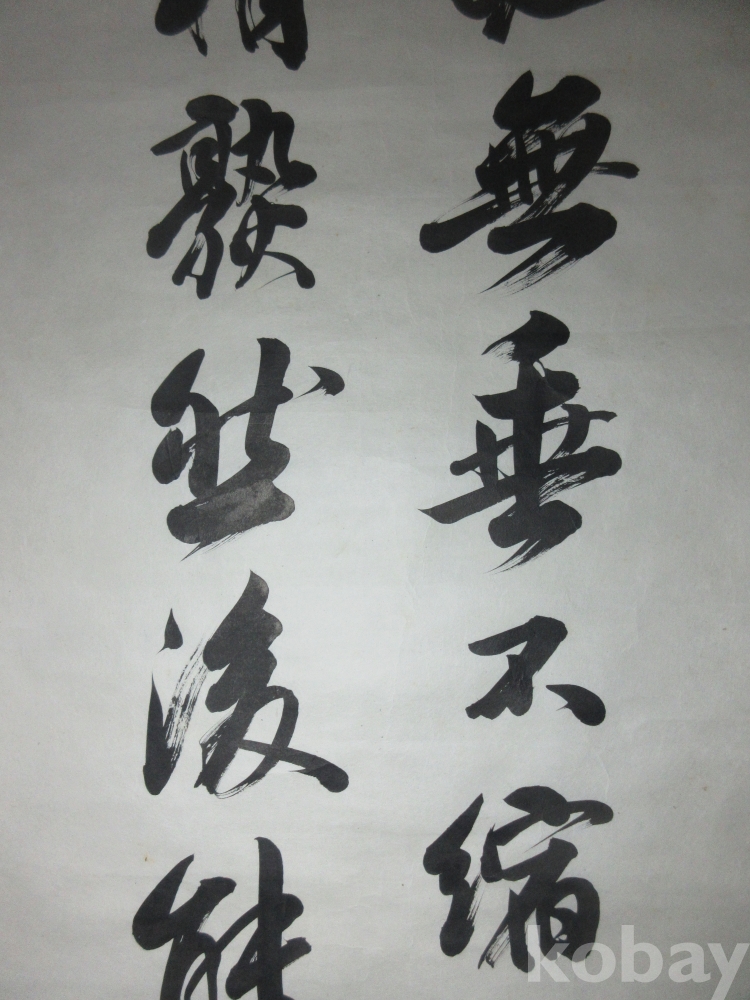 無垂不縮
熟然後能
kobay